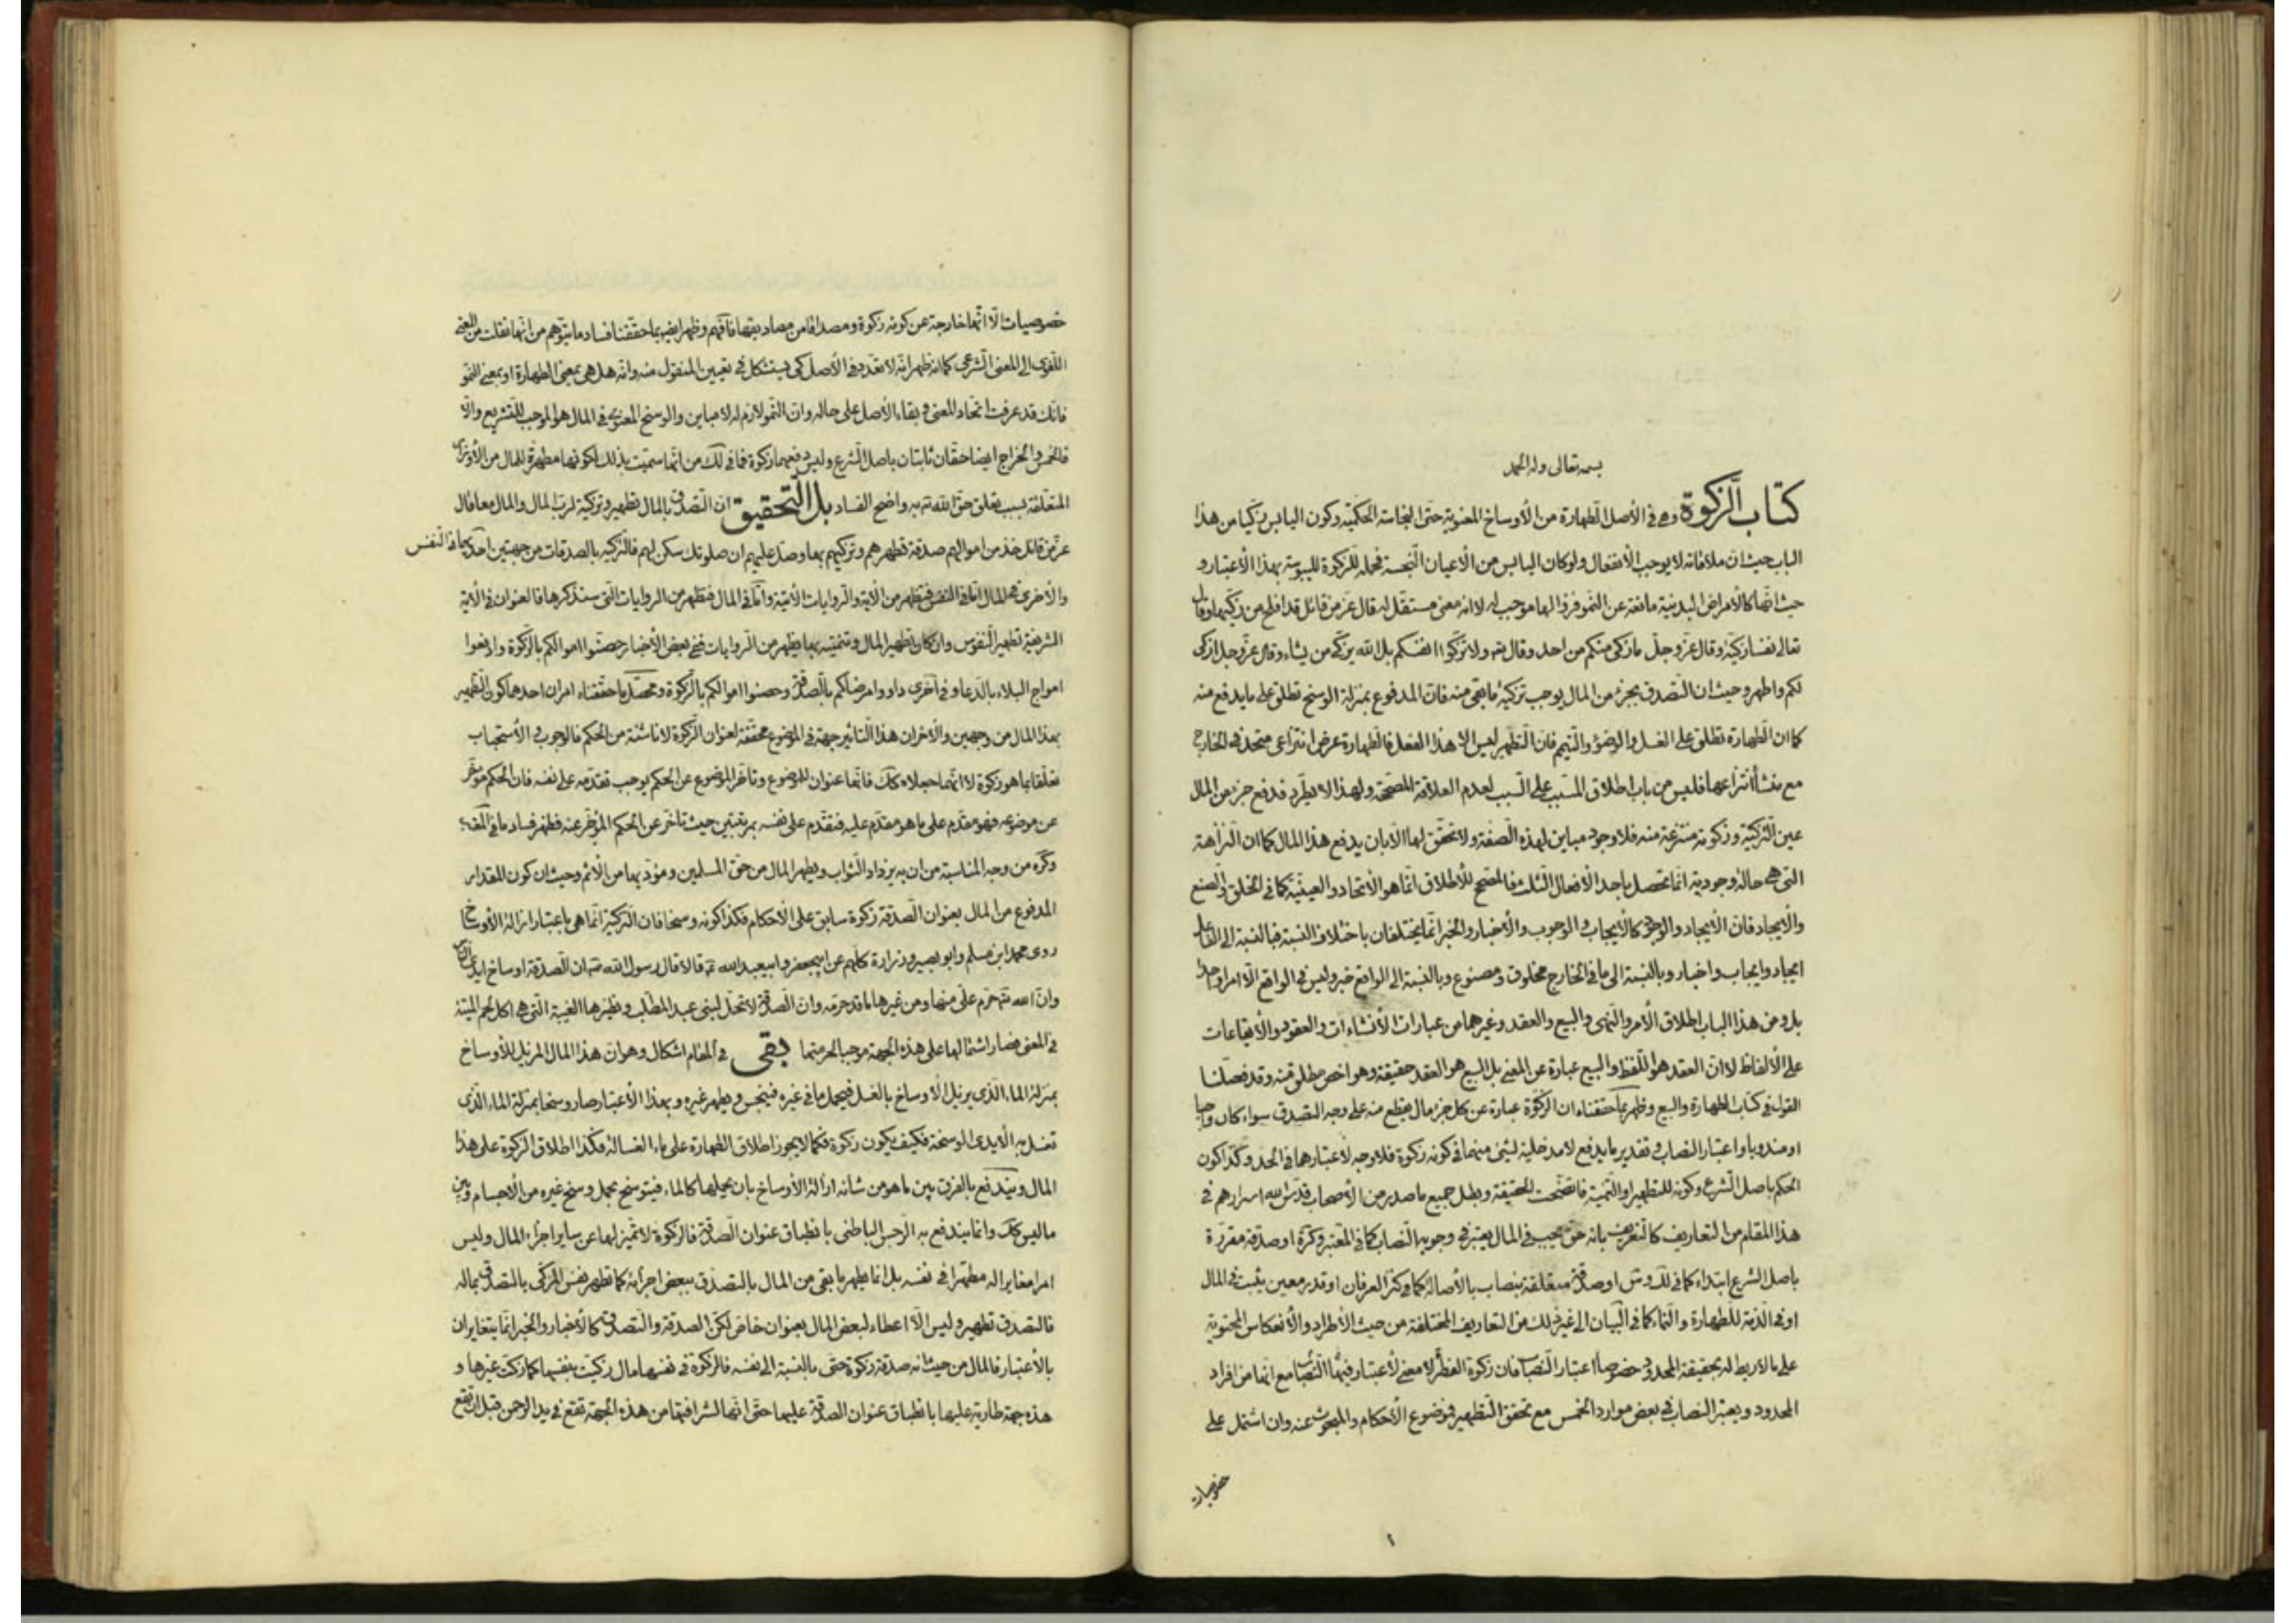 بسمه تعالى وله الحمد
كتاب الزكوة وهي في الأصل الطهارة من الأوساخ المعنوية حتى النجاسة الحكمية وكون اليابس زكيا من هذا
الباب حيث ان ملاقاته لا يوجب الانفعال ولو كان اليابس من الأعيان النجسة فجعله للزكوة لليبوسة بهذا الأعتبار و
حيث انها كالأمراض البدنية مانعة عن النمو فزوالها موجب له لا انه معنى مستقل له قال عز من قائل قد افلح من زكيها وقال
تعالى نفسا زكية وقال عز وجل ما زكى منكم من احد وقال ولا تزكوا انفسكم بل الله يزكى من يشاء وقال عز وجل ازكى
لكم واطهر وحيث ان التصدق بجزء من المال يوجب تزكية ما بقى منه فان المدفوع بمنزلة الوسخ تطلق على ما يدفع منه
كما ان الطهارة تطلق على الغسل والوضوء والتيمم فان التطهر ليس الا هذا الفعل فالطهارة عرض انتزاعى متحد في الخارج
مع منشأ انتزاعها فليس من باب اطلاق المسبب على السبب لعدم العلاقة المصححة ولهذا لا يطرد فدفع جزء من المال
عين التزكية وزكوته منتزعة منه فلا وجود مباين لهذه الصفة ولا تحقق لها الا بان يدفع هذا المال كما ان النزاهة
التي هي حالة وجودية انما تحصل باحد الأفعال الثلث فالمصحح للأطلاق انما هو الأتحاد والعينية كما في الخلق والصنع
والأيجاد فان الأيجاد والوجود كالأيجاب والوجوب والأخبار والخبر انما يختلفان باختلاف النسبة فبالنسبة الى الفاعل
ايجاد وايجاب واخبار وبالنسبة الى ما في الخارج مخلوق ومصنوع وبالنسبة الى الواقع خبر وليس في الواقع الا امر واحد
بل ومن هذا الباب اطلاق الأمر والنهى والبيع والعقد وغيرهما من عبارات الأنشاءات والعقود والأيقاعات
على الألفاظ لا ان العقد هو اللفظ والبيع عبارة عن المعنى بل البيع هو العقد حقيقة وهو اخص مطلق منه وقد فصلنا
القول في كتاب الطهارة والبيع وظهر بما حققناه ان الزكوة عبارة عن كل جزء مال يقطع منه على وجه التصدق سواء كان واجبا
او مندوبا واعتبار النصاب في تقدير ما يدفع لا مدخلية لشئ منهما في كونه زكوة فلا وجه لأعتبارهما في الحد وكذا كون
الحكم باصل الشرع وكونه للتطهير او التنمية فاتضحت الحقيقة وبطل جميع ما صدر من الأصحاب قدس الله اسرارهم في
هذا المقام من التعاريف كالتعريف بانه حق يجب في المال يعتبر في وجوبه النصاب كما في المعتبر وكره او صدقة مقررة
باصل الشرع ابتداء كما في لك وس او صدقة متعلقة بنصاب بالأصالة كما في كنز العرفان او قدر معين يثبت في المال
او في الذمة للطهارة والنماء كما في البيان الى غير ذلك من التعاريف المختلفة من حيث الأطراد والأنعكاس المحتوية
على ما لا ربط له بحقيقة المحدود خصوصا اعتبار النصاب فان زكوة الفطر لا معنى لأعتبار فيها النصاب مع انها من افراد
المحدود ويعتبر النصاب في بعض موارد الخمس مع تحقق التطهير فموضوع الأحكام والمبحوث عنه وان اشتمل على
خصوصيات
٢
خصوصيات الا انها خارجة عن كونه زكوة ومصداقا من مصاديقها فافهم وظهر ايضا بما حققنا فساد ما يتوهم من انها نقلت من المعنى
اللغوى الى المعنى الشرعى كما انه ظهر انه لا تعدد في الأصل كى يستشكل في تعيين المنقول منه وانه هل هي بمعنى الطهارة او بمعنى النمو
فانك قد عرفت اتحاد المعنى وبقاء الأصل على حاله وان النمو لازم له لا مباين والوسخ المعنوى في المال هو الموجب للتشريع والا
فالخمس والخراج ايضا حقان ثابتان باصل الشرع وليس دفعهما زكوة فما في لك من انها سميت بذلك لكونها مطهرة للمال من الأوزار
المتعلقة بسبب تعلق حق الله به واضح الفساد بل التحقيق ان التصدق بالمال تطهير وتزكية لرب المال والمال معا قال
عز من قائل خذ من اموالهم صدقة تطهرهم وتزكيهم بها وصل عليهم ان صلوتك سكن لهم فالتزكية بالصدقات من جهتين احدهما في النفس
والأخرى في المال اما في النفس فتظهر من الآية والروايات الآتية واما في المال فتظهر من الروايات التى سنذكرها فالعنوان في الآية
الشريفة تطهير النفوس وان كان تطهير المال وتنميته بها يظهر من الروايات ففى بعض الأخبار حصنوا اموالكم بالزكوة وادفعوا
امواج البلاء بالدعاء وفي اخرى داووا مرضاكم بالصدقة وحصنوا اموالكم بالزكوة ومحصل ما حققناه امران احدهما كون التطهير
بهذا المال من وجهين والآخر ان هذا التأثير جهة في الموضوع محققة لعنوان الزكوة لا ناشئة من الحكم فالوجوب والأستحباب
تعلقا بما هو زكوة لا انهما جعلاه كك فانها عنوان للموضوع وتأخر الموضوع عن الحكم يوجب تقدمه على نفسه فان الحكم مؤخر
عن موضوعه فهو مقدم على ما هو مقدم عليه فتقدم على نفسه بمرتبتين حيث تأخر عن الحكم المؤخر عنه فظهر فساد ما في
وكره من وجه المناسبة من ان به يزداد الثواب ويطهر المال من حق المسلمين ومؤديها من الأثم وحيث ان كون المقدار
المدفوع من المال بعنوان الصدقة زكوة سابق على الأحكام فكذا كونه وسخا فان التزكية انما هي باعتبار ازالة الأوساخ
روى محمد ابن مسلم وابو بصير وزرارة كلهم عن ابيجعفر وابيعبد الله قالا قال رسول الله ان الصدقة اوساخ ايدى الناس
وان الله حرم على منها ومن غيرها ما قد حرمه وان الصدقة لا تحل لبنى عبد المطلب ونظيرها الغيبة التى هي اكل لحم الميتة
في المعنى فصار اشتمالها على هذه الجهة موجبا لحرمتها بقى في المقام اشكال وهو ان هذا المال المزيل للأوساخ
بمنزلة الماء الذى يزيل الأوساخ بالغسل فيحمل ما في غيره فينجس ويطهر غيره وبهذا الأعتبار صار وسخا بمنزلة الماء الذى
تغسل به الأيدى الوسخة فكيف يكون زكوة فكما لا يجوز اطلاق الطهارة على ماء الغسالة فكذا اطلاق الزكوة على هذا
المال ويندفع بالفرق بين ما هو من شأنه ازالة الأوساخ بان يحملها كالماء فيتوسخ بحمل وسخ غيره من الأجسام وبين
ما ليس كك وانما يندفع به الرجس الباطنى بانطباق عنوان الصدقة فالزكوة لا تميز لها عن ساير اجزاء المال وليس
امرا مغايرا له مطهرا في نفسه بل انما يطهر ما بقى من المال بالتصدق ببعض اجزائه كما تطهر نفس المزكى بالتصدق بماله
فالتصدق تطهير وليس الا اعطاء لبعض المال بعنوان خاص لكن الصدقة والتصدق كالأخبار والخبر انما يتغايران
بالأعتبار فالمال من حيث انه صدقة زكوة حتى بالنسبة الى نفسه فالزكوة في نفسها مال زكيت بنفسها كما زكت غيرها و
هذه جهة طارية عليها بانطباق عنوان الصدقة عليها حتى انها لشرافتها من هذه الجهة تقع في يد الرحمن قبل ان تقع